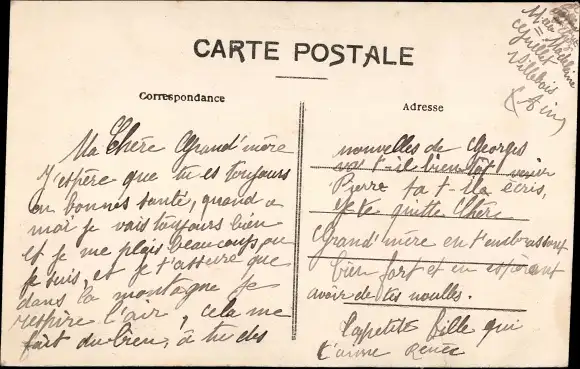 CARTE POSTALE
Correspondance
Adresse
Ma Chère Grand'mère
J'espère que tu es toujours
en bonnes santé, quand a
moi je vais toujours bien
et je me plais beaucoup ou
je suis, et je t'assure que
dans la montagne je
respire l'air, cela me
fait du bien, à tu des
nouvelles de Georges
va t-il bientôt venir
Pierre ta t-il écris,
Je te quitte Chère
Grand'mère en t'embrassant
bien fort et en espèrant
avoir de tes nouvlles.
Ta petite fille qui
t'aime Renée
Madeleine
Guillet
Villebois
(Ain)